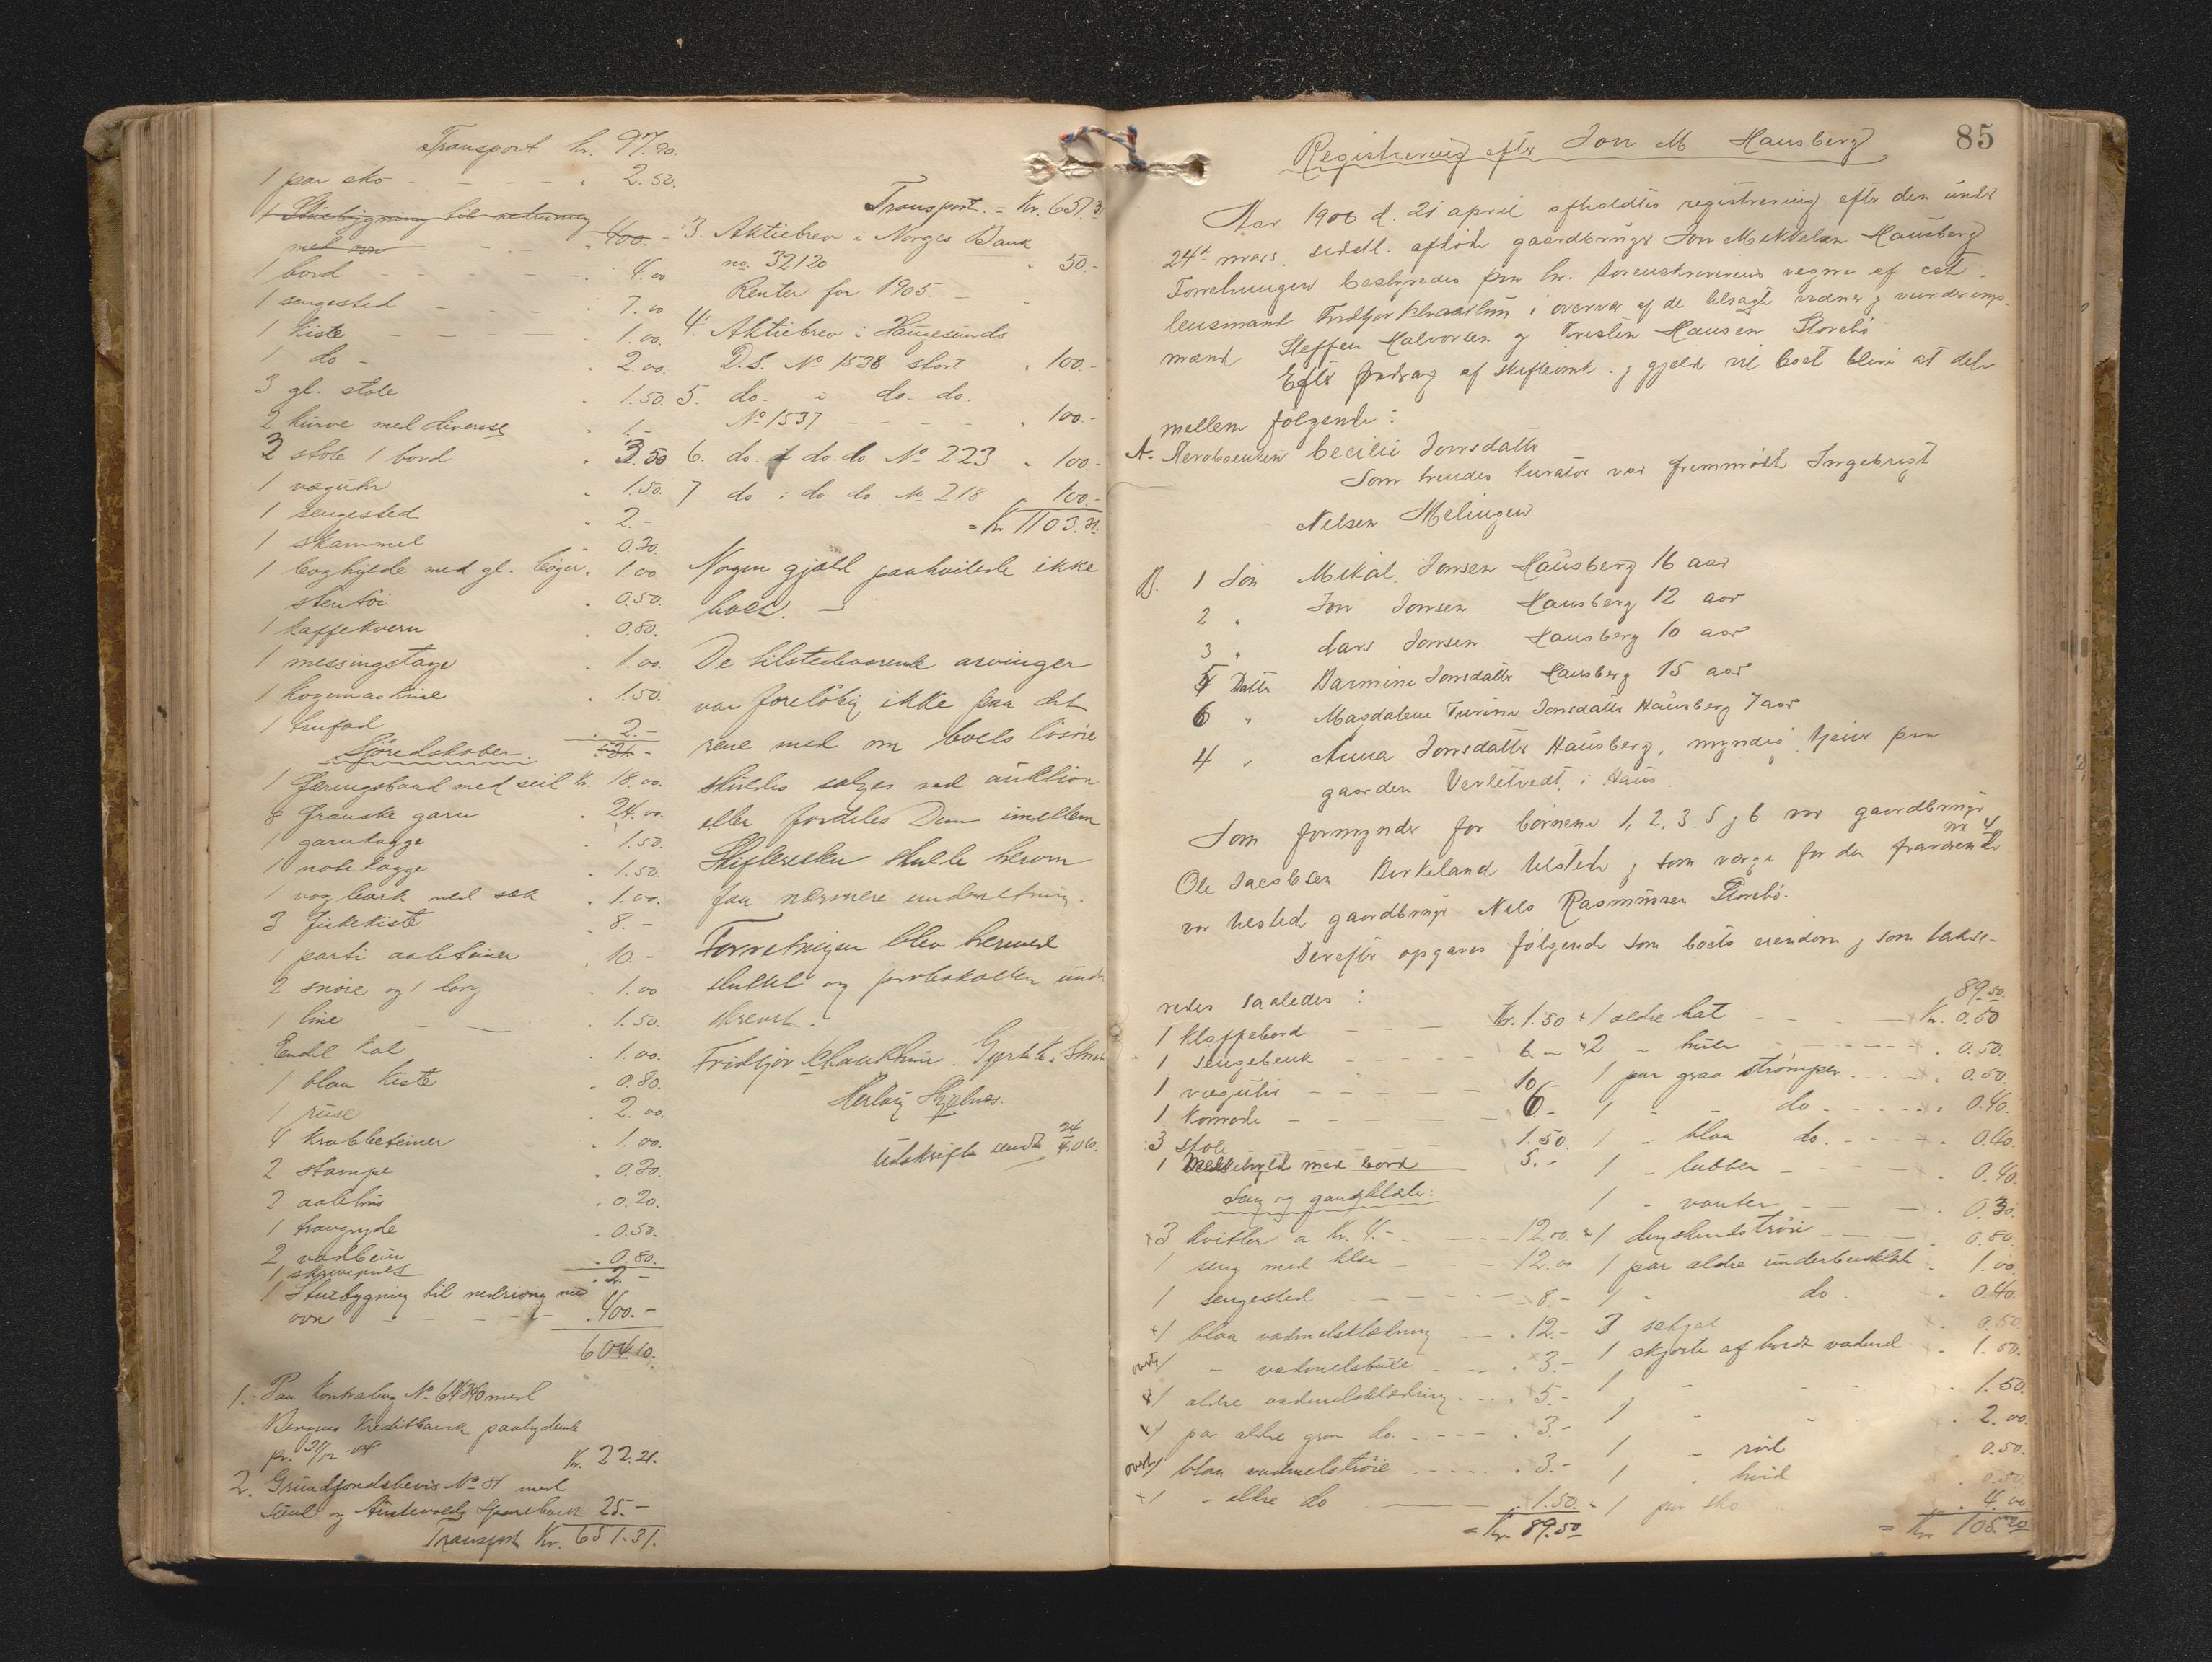 Transport kr. 97.90.
1 par sko - - - - " 2.50.
1 Stuebygning til nedrivning
med ovn - - " 400.-
1 bord - - - - - " 4.00
1 sengested - - - " 7.00
1 kiste - - - " 1.00.
1 do - " 2.00.
3 gl. stole " 1.50.
2 kurve med diverse " 1.-
2 stole 1 bord " 3.50
1 væguhr " 1.50.
1 sengested " 2.-
1 skammel " 0.30.
1 boghylde med gl. bøger " 1.00
stentøi " 0.50.
1 kaffekvern " 0.80.
1 messingstage " 1.00.
1 kogemaskine " 1.50.
1 tinfad " 2.-
Sjøredskaber.
1 færingsbaad med seil kr. 18.00.
8 franske garn " 24.00.
1 garnbagge " 1.50.
1 notebagge " 1.50.
1 vog bark med sæk " 1.00.
3 fiskekiste " 8.-
1 parti aaleteiner " 10.-
2 snøre og 1 " 1.00
1 line - - " 1.50.
Endel kal " 1.00.
1 blaa kiste " 0.80.
1 ruse " 2.00.
4 krabbeteiner " 1.00.
2 stampe " 0.30.
2 " 0.20.
1 travgryde " 0.50.
2 vadbein " 0.80.
1 " 2.-
1 Stuebygning til nedrivng med
ovn - - - - " 400.-
604.10.
1. Paa Kontrabog No. med
Bergens Kreditbank paalydende
pr. 31/12 -05 Kr. 22.21.
2. Grundfondsbevis No 81 med
Sund og Austevolds Sparebank 25.-
Transport Kr. 651.31.
Transport. = Kr. 651.31
3. Aktiebrev i Norges Bank
no. 32120 " 50.-
Renter for 1905. - "
4. Aktiebrev i Haugesunds
D.S. No 1538 stort " 100.-
5. do. i do. do.
No 1537 - - - " 100.-
6. do. i do. do. No 223 " 100.-
7 do i do do No 218 " 100.-
= Kr. 1103.31.
Nogen gjæld paahvilede ikke
boet. -
De tilstedeværende arvinger
var foreløbig ikke paa det
rene med om boets løsøre
skuldes sælges ved auktion
eller fordeles Dem imellem
Skifteretten skulle herom
faa nærmere underretning.
Forretningen blev hermed
sluttet og protokollen under
skrevet.
Fridtjov Klaasthun.
Herlaug Hjelmas.
Udskrift sendt 24/4 06.
85
Registrering efter Jon M. Hausberg
Aar 1906 d. 21 april afholdtes registrering efter den under
24de mars. sidstl. afdøde gaardbruger Jon Mikkelsen Hausberg
Forretningen bestyredes paa hr. sorenskriverens vegne af cst.
lensmand Fridtjov Klaasthun i overvær af de tilsagte vidner og vurderings-
mænd Steffen Halvorsen og Kristen Hansen Storebø
Efter fradrag af skifteomk. og gjæld vil boet blive at dele
mellem følgende:
A. Medboersken Cecilie Jonsdatter
Som hendes kurator var fremmødt Ingebrigt
Nilsen Melingen
B. 1 Søn Mikal Jonsen Hausberg 16 aar
2 " Jon Jonsen Hausberg 12 aar
3 " Lars Jonsen Hausberg 10 aar
5 Datter Jonsdatter Hausberg 15 aar
6 " Magdalene Turine Jonsdatter Hausberg 7 aar
4 " Anna Jonsdatter Hausberg, myndig, tjener paa
gaarden Verletvedt i Haus.
Som formynder for børnene 1, 2, 3, 5 og 6 var gaardbruger
Ole Jacobsen Birkeland tilstede og som værge for den fraværende nr 4
var tilstede gaardbruger Nils Rasmussen Storebø.
Derefter opgaves følgende som boets eiendom og som takse-
redes saaledes:
1 Klaffebord - - - Kr. 1.50
1 Sengebenk - - - - 6.-
1 væguhr - - - - - 10.-
1 Komode - - - - - 6.-
3 stole 1.50.
1 med bord 5.-
Seng og gangklæder:
+3 kvitler a Kr. 4.- - - - 12.00.
1 seng med klær - - - 12.00
1 sengested - - - - - 8.-
+1 blaa vadmelsklædning - - . 12.-
1 - vadmelsbuxe - - - . 3.-
+1 ældre vadmelsklædning . . . . 5.-
+1 par ældre graa do. - - - - . 3.-
1 blaa vadmelstrøie - - - - . 3.-
+1 - ældre do - - . 1.50.
= Kr. 89.50
89.50.
+1 ældre hat - - - Kr. 0.50
+2 " huer - - - - - . 0.50.
1 par graa strømper - - - . 0.50.
1 " - do - - - - . 0.40.
1 " blaa do. - - - - . 0.40.
1 " lubber - - - - . 0.40.
1 " vanter - - - . 0.30.
+1 - - - . 0.80.
1 par ældre underbenklæder . 1.00
1 " do . " 0.40.
3 . 0.50
1 skjorte af hvidt vadmel . 1.50.
1 - - - . 1.50.
1 - - . 2.00.
1 - . 0.50.
1 " hvid . 0.50
1 par sko . 4.00
= Kr. 105.20